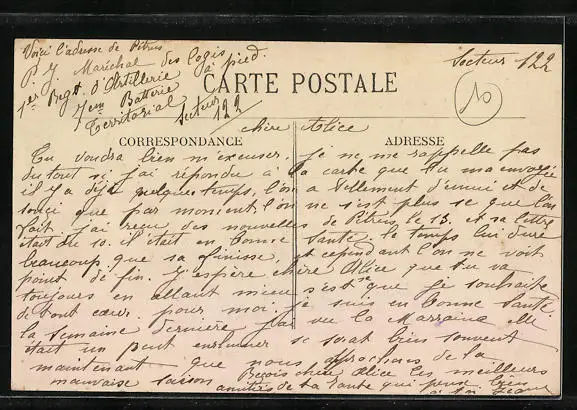 Voici l'adresse de Pétrus
P. J. Maréchal des logis
1er Regt d'Artillerie à pied.
7em Batterie
Territorial Secteur 122
Secteur 122
10
CARTE POSTALE
CORRESPONDANCE
ADRESSE
chère Alice
Tu voudra bien m'excuser. Je ne me rappelle pas
du tout si j'ai répondu à la carte que tu m'a envoyée
il y a déjà quelque temps, l'on a tellement d'ennui et de
souci que par moment l'on ne s'est plus se que l'on
fait. j'ai reçu des nouvelles de Pétrus le 13. et sa lettre
était du 10. il était en bonne santé. le temps lui dure
beaucoup que sa finisse, et cependant l'on ne voit
point de fin. J'espère chère Alice que tu va
toujours en allant mieu s'est ce que je souhaite
de tout cœur. pour moi je suis en bonne santé.
la semaine dernière j'ai vu la Marraine elle
était un peut enrhumer se serat bien souvent
maintenant que nous approchons de la
mauvaise saison Reçois chère Alice les meilleurs
amitiés de ta tante qui pense bien
à toi